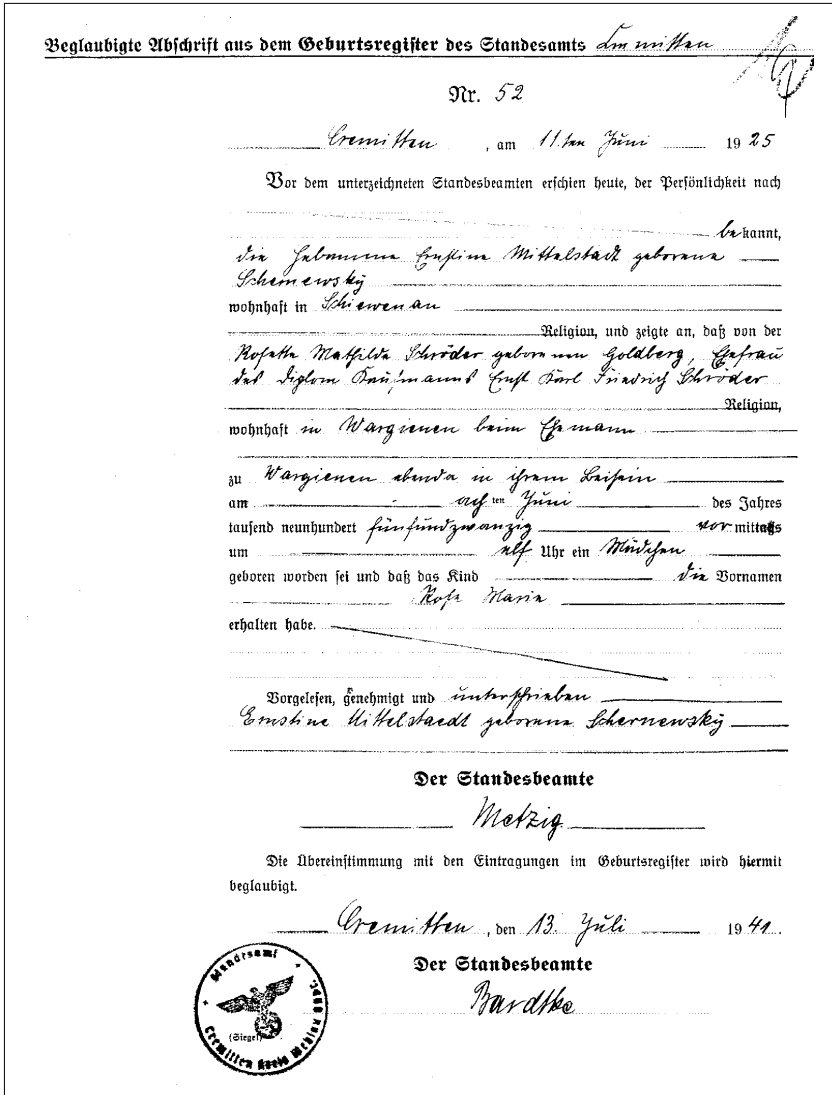 Beglaubigte Abschrift aus dem Geburtsregister des Standesamts Cremitten
Nr. 52
Cremitten, am 11.ten Juni 1925
Vor dem unterzeichneten Standesbeamten erschien heute, der Persönlichkeit nach
bekannt,
die Hebamme Ernstine Mittelstädt geborene
Schernewsky
wohnhaft in Schiewenau
Religion, und zeigte an, daß von der
Rosette Mathilde Schröder geborenen Goldberg, Ehefrau
des Diplom Kaufmanns Ernst Karl Friedrich Schröder
Religion,
wohnhaft in Wargienen beim Ehemann
zu Wargienen ebenda in ihrem Beisein
am achten Juni des Jahres
tausend neunhundert fünfundzwanzig vormittags
um elf Uhr ein Mädchen
geboren worden sei und daß das Kind die Vornamen
Rose Marie
erhalten habe.
Vorgelesen, genehmigt und unterschrieben
Ernstine Mittelstaedt geborene Schernewsky
Der Standesbeamte
Metzig
Die Übereinstimmung mit den Eintragungen im Geburtsregister wird hiermit
beglaubigt.
Cremitten, den 13. Juli 1941.
Der Standesbeamte
Bardtke
Standesamt
(Siegel)
Cremitten Kreis Wehlau